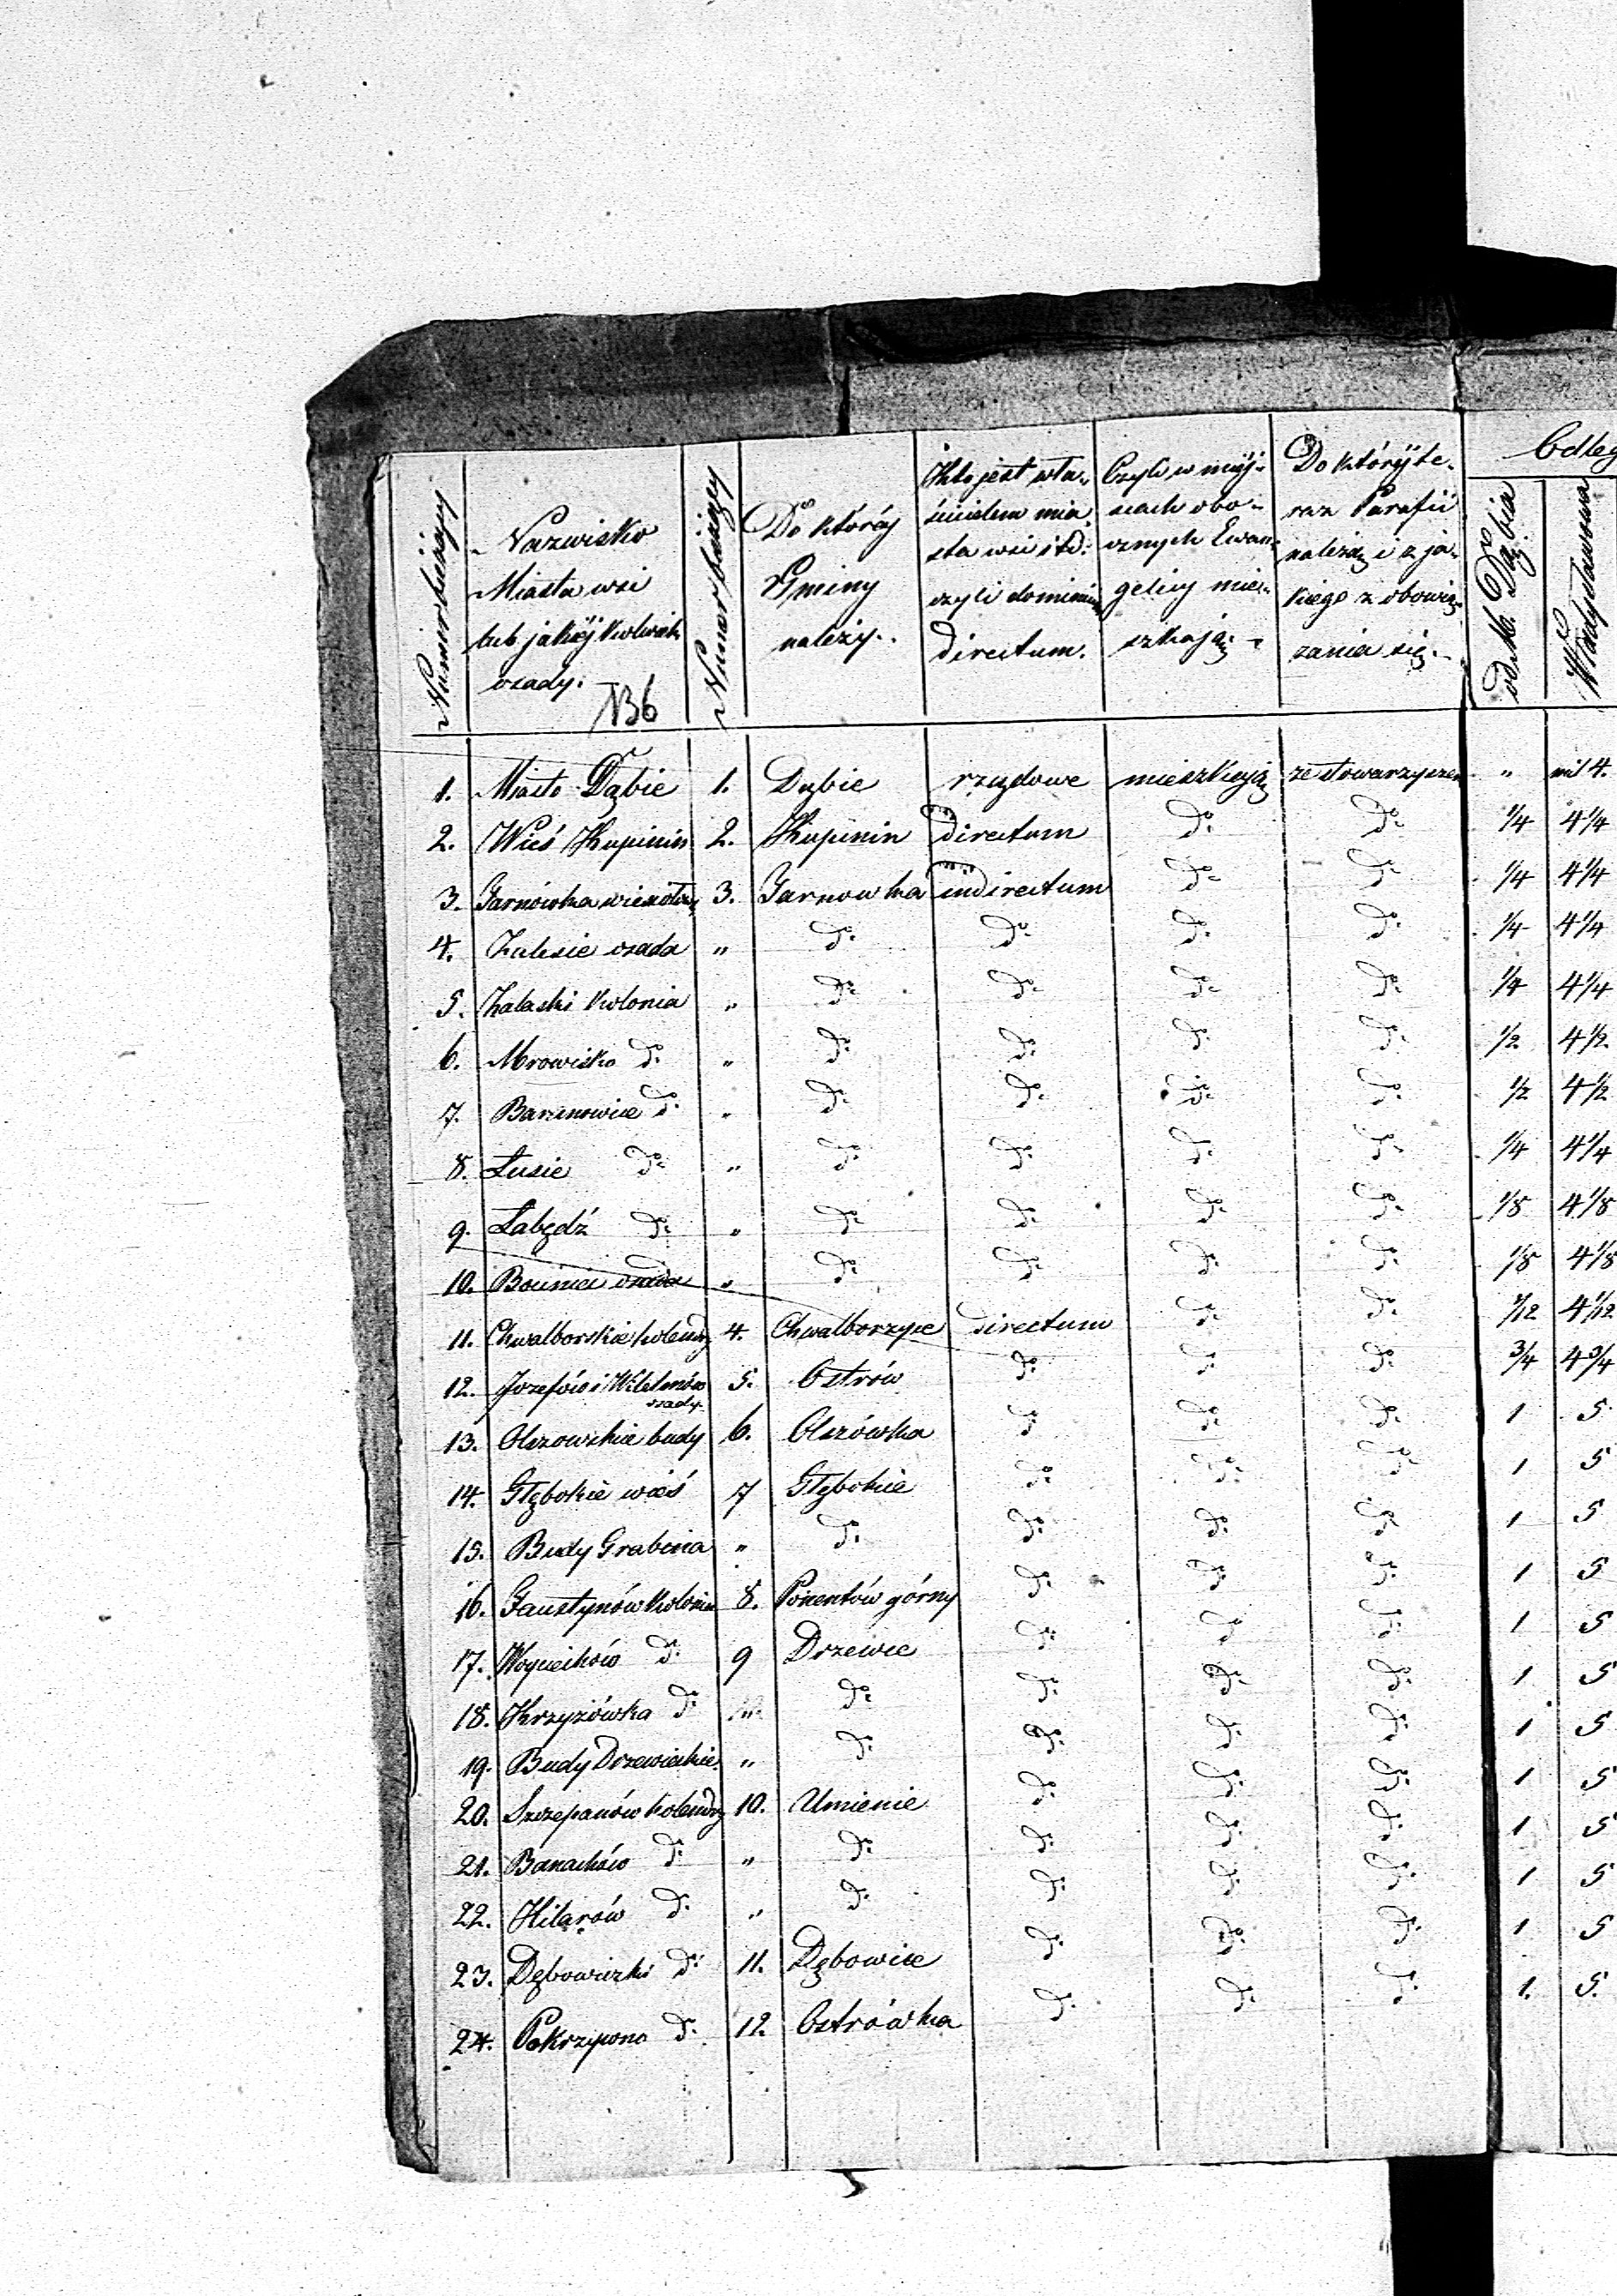 Numer bieżący
Nazwisko
Miasta wsi
lub jakiéj kolwiek
osady.
NB6
Numer bieżący
Do któréy
Gminy
należy.
Kto jest wła-
ścicielem mia-
sta wsi itd:
czyli dominium
directum.
Czyli w miéj-
scach obo-
cznych Ewan-
gelicy mie-
szkają.
Do któréj te-
raz Parafii
należą i z ja-
kiego z obowią-
zania się.
Odleg
od M. Dąbia
Władysławowa
1. Miasto Dąbie 1. Dąbie rządowe mieszkają ze stowarzyszen " mil 4.
2. Wieś Kupinin 2. Kupinin directum do do 1/4 4 1/4
3. Tarnówka wieś 3. Tarnowka indirectum do do 1/4 4 1/4
4. Zalesie osada " do do do do 1/4 4 1/4
5. Zalaski kolonia " do do do do 1/4 4 1/4
6. Mrowisko do " do do do do 1/2 4 1/2
7. Baranowice do " do do do do 1/2 4 1/2
8. Lusie do " do do do do 1/4 4 1/4
9. Łabędź do " do do do do 1/8 4 1/8
10. osada " do do do do 1/8 4 1/8
11. Chwalborskie holendry 4. Chwalborzyce directum do do 1/12 4 1/12
12. Jozefów i Wilelmów 5. Ostrów do do do 3/4 4 3/4
osady
13. Olszowskie budy 6. Olszówka do do do 1 5
14. Głębokie wieś 7 Głębokie do do do 1 5
15. Budy Grabina " do do do do 1 5
16. Faustynów kolonia 8. Ponentów górny do do do 1 5
17. Woyciechów do 9 Drzewce do do do 1 5
18. Krzyżówka do " do do do do 1 5
19. Budy Drzewieckie " do do do do 1 5
20. Szczepanów holendry 10. Umienie do do do 1 5
21. Banachów do " do do do do 1 5
22. Hilarów do " do do do do 1 5
23. Dębowiczki do 11. Dębowice do do do 1 5
24. Pokrzywno do 12. Ostrówka do do do 1. 5.